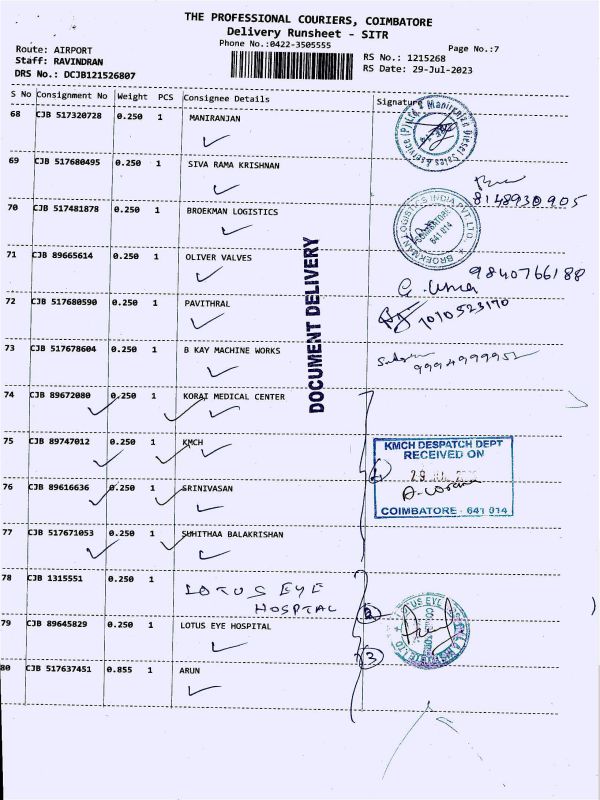 THE PROFESSIONAL COURIERS, COIMBATORE
Delivery Runsheet - SITR
Phone No.:0422-3505555
Page No.:7
Route: AIRPORT
Staff: RAVINDRAN
RS No.: 1215268
DRS No.: DCJB121526807
RS Date: 29-Jul-2023
S No Consignment No Weight PCS Consignee Details Signature
68 CJB 517320728 0.250 1 MANIRANJAN
69 CJB 517680495 0.250 1 SIVA RAMA KRISHNAN
8148930905
70 CJB 517481878 0.250 1 BROEKMAN LOGISTICS
BROEKMAN LOGISTICS INDIA PVT LTD.
COIMBATORE
641 014
71 CJB 89665614 0.250 1 OLIVER VALVES
9840766188
G. Uma
72 CJB 517680590 0.250 1 PAVITHRAL
7010523170
DOCUMENT DELIVERY
73 CJB 517678604 0.250 1 B KAY MACHINE WORKS
74 CJB 89672080 0.250 1 KORAI MEDICAL CENTER
75 CJB 89747012 0.250 1 KMCH
KMCH DESPATCH DEPT
RECEIVED ON
COIMBATORE - 641 014
76 CJB 89616636 0.250 1 SRINIVASAN
77 CJB 517671053 0.250 1 SUHITHAA BALAKRISHAN
78 CJB 1315551 0.250 1 LOTUS EYE
HOSPTAL
2
79 CJB 89645829 0.250 1 LOTUS EYE HOSPITAL
3
80 CJB 517637451 0.855 1 ARUN